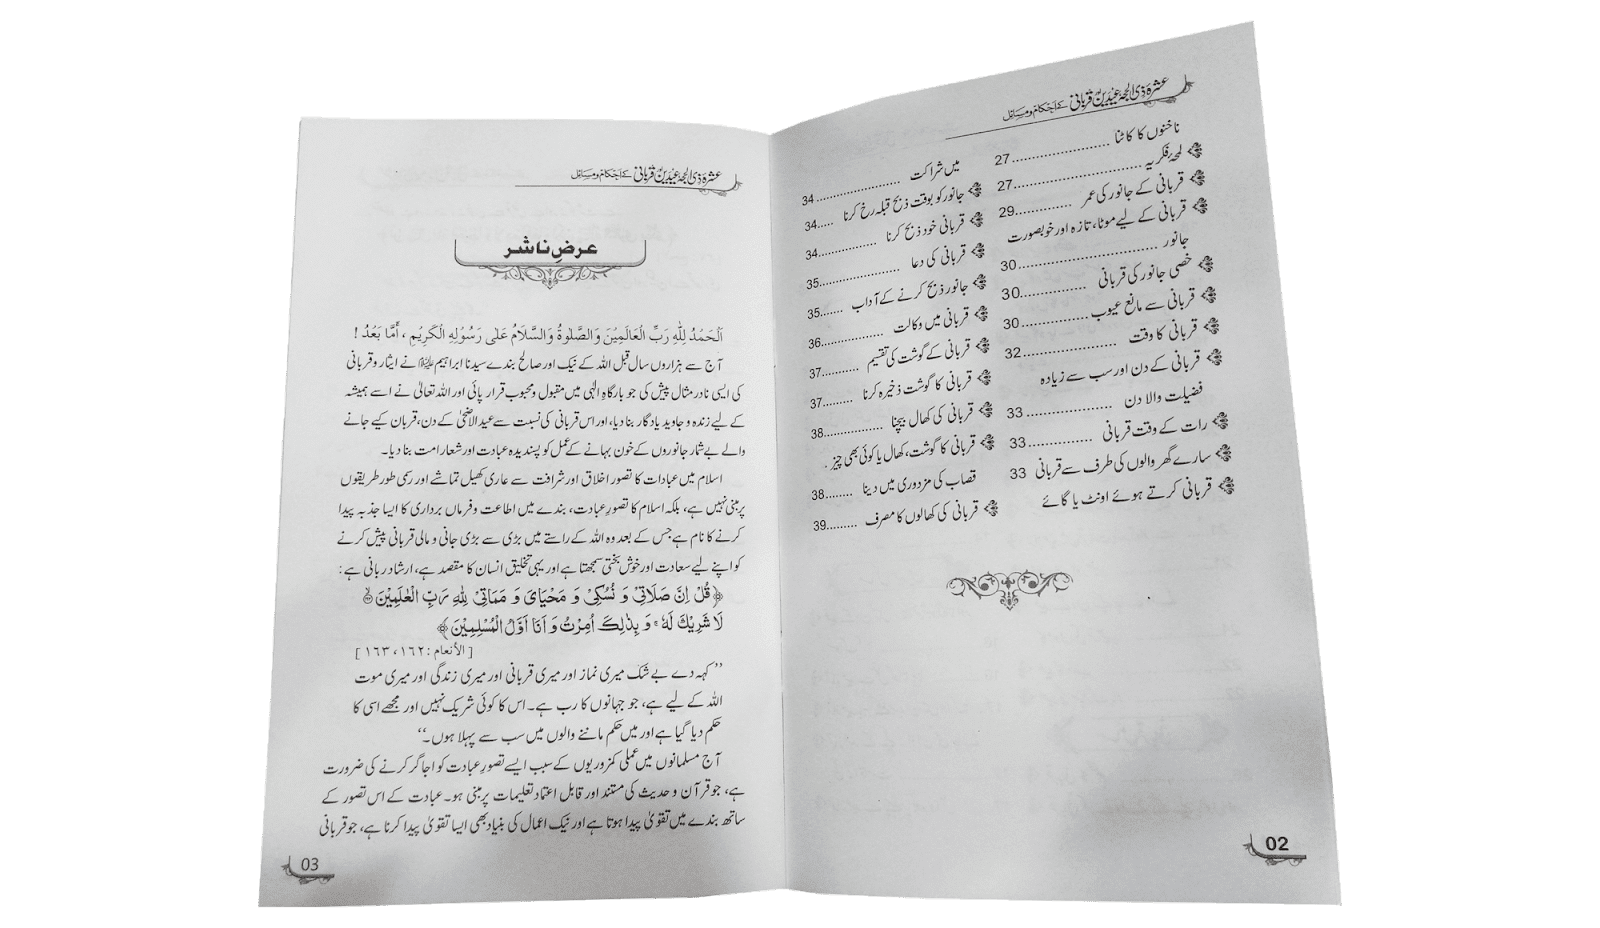 عشرہ ذی الحجہ عیدین اور قربانی کے احکام و مسائل
ناخنوں کا کاٹنا .......... 27
لمحۂ فکریہ .......... 27
قربانی کے جانور کی عمر .......... 29
قربانی کے لیے موٹا، تازہ اور خوبصورت
جانور .......... 30
خصی جانور کی قربانی .......... 30
قربانی سے مانع عیوب .......... 30
قربانی کا وقت .......... 32
قربانی کے دن اور سب سے زیادہ
فضیلت والا دن .......... 33
رات کے وقت قربانی .......... 33
سارے گھر والوں کی طرف سے قربانی 33
قربانی کرتے ہوئے اونٹ یا گائے
میں شراکت .......... 34
جانور کو بوقت ذبح قبلہ رخ کرنا ..... 34
قربانی خود ذبح کرنا .......... 34
قربانی کی دعا .......... 35
جانور ذبح کرنے کے آداب ...... 35
قربانی میں وکالت .......... 36
قربانی کے گوشت کی تقسیم .......... 37
قربانی کا گوشت ذخیرہ کرنا ........ 37
قربانی کی کھال بیچنا .......... 38
قربانی کا گوشت، کھال یا کوئی بھی چیز .
قصاب کی مزدوری میں دینا ........ 38
قربانی کی کھالوں کا مصرف ......... 39
02
عشرہ ذی الحجہ عیدین اور قربانی کے احکام و مسائل
عرضِ ناشر
اَلْحَمْدُ لِلّٰہِ رَبِّ الْعَالَمِیْنَ وَالصَّلٰوۃُ وَالسَّلَامُ عَلٰی رَسُوْلِہِ الْکَرِیْمِ ، أَمَّا بَعْدُ !
آج سے ہزاروں سال قبل اللہ کے نیک اور صالح بندے سیدنا ابراہیم علیہ السلام نے ایثار و قربانی
کی ایسی نادر مثال پیش کی جو بارگاہِ الٰہی میں مقبول و محبوب قرار پائی اور اللہ تعالیٰ نے اسے ہمیشہ
کے لیے زندہ و جاوید یادگار بنا دیا، اور اس قربانی کی نسبت سے عید الاضحیٰ کے دن، قربان کیے جانے
والے بے شمار جانوروں کے خون بہانے کے عمل کو پسندیدہ عبادت اور شعار امت بنا دیا۔
اسلام میں عبادات کا تصور اخلاق اور شرافت سے عاری کھیل تماشے اور رسمی طور طریقوں
پر مبنی نہیں ہے، بلکہ اسلام کا تصورِ عبادت، بندے میں اطاعت و فرماں برداری کا ایسا جذبہ پیدا
کرنے کا نام ہے جس کے بعد وہ اللہ کے راستے میں بڑی سے بڑی جانی و مالی قربانی پیش کرنے
کو اپنے لیے سعادت اور خوش بختی سمجھتا ہے اور یہی تخلیق انسان کا مقصد ہے، ارشاد ربانی ہے :
﴿قُلْ اِنَّ صَلَاتِیْ وَ نُسُکِیْ وَ مَحْیَایَ وَ مَمَاتِیْ لِلّٰہِ رَبِّ الْعٰلَمِیْنَ
لَا شَرِیْکَ لَہٗ وَ بِذٰلِکَ اُمِرْتُ وَ اَنَا اَوَّلُ الْمُسْلِمِیْنَ﴾
[ الأنعام : ١٦٢، ١٦٣ ]
’’کہہ دے بے شک میری نماز اور میری قربانی اور میری زندگی اور میری موت
اللہ کے لیے ہے، جو جہانوں کا رب ہے۔ اس کا کوئی شریک نہیں اور مجھے اسی کا
حکم دیا گیا ہے اور میں حکم ماننے والوں میں سب سے پہلا ہوں۔‘‘
آج مسلمانوں میں عملی کمزوریوں کے سبب ایسے تصورِ عبادت کو اجاگر کرنے کی ضرورت
ہے، جو قرآن و حدیث کی مستند اور قابل اعتماد تعلیمات پر مبنی ہو۔ عبادت کے اس تصور کے
ساتھ بندے میں تقویٰ پیدا ہوتا ہے اور نیک اعمال کی بنیاد بھی ایسا تقویٰ پیدا کرنا ہے، جو قربانی
03